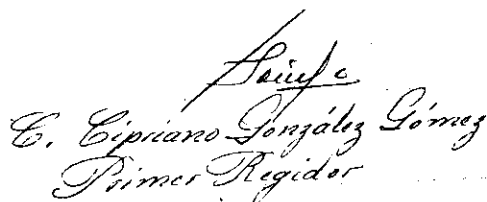 C. Cipriano González Gómez
Primer Regidor